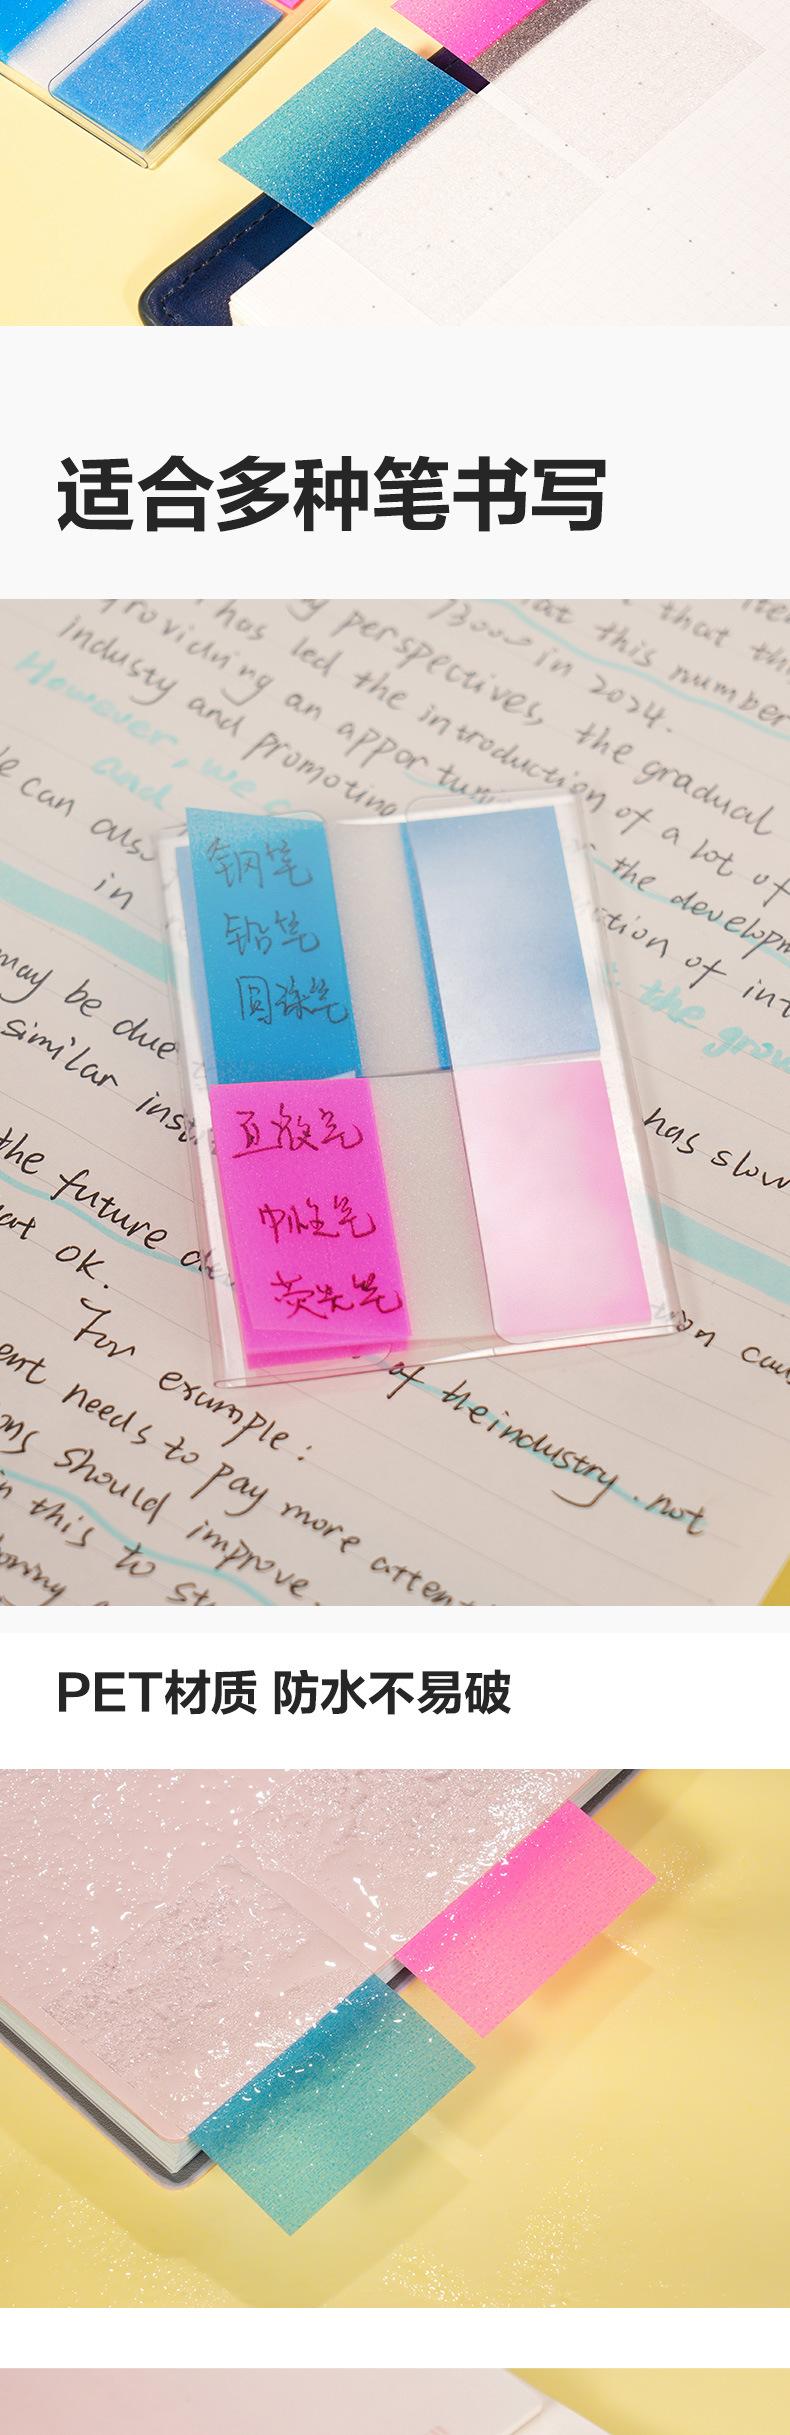 适合多种笔书写
that that thi
73000 that this number
has led the in 2024.
providing perspectives, the gradual
industy and an the introduction of a lot of
However, we promoting appor tuni the developm
and
can also tion of int
in the grow
may be due
similar inst has slow
the future
at ok.
For example: tion cau
ent needs to pay more attent of the industry. not
ons should improve.
in this to st
钢笔
铅笔
圆珠笔
直液笔
中性笔
荧光笔
PET材质 防水不易破